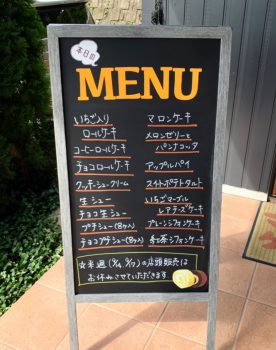 本日の
MENU
いちご入り
ロールケーキ
コーヒーロールケーキ
チョコロールケーキ
クッキーシュークリーム
生シュー
チョコ生シュー
プチシュー(8ヶ入)
チョコプチシュー(8ヶ入)
マロンケーキ
メロンゼリーと
パンナコッタ
アップルパイ
スイートポテトタルト
いちごマーブル
レアチーズケーキ
プレーンシフォンケーキ
紅茶シフォンケーキ
☆来週の店頭販売は
お休みさせていただきます